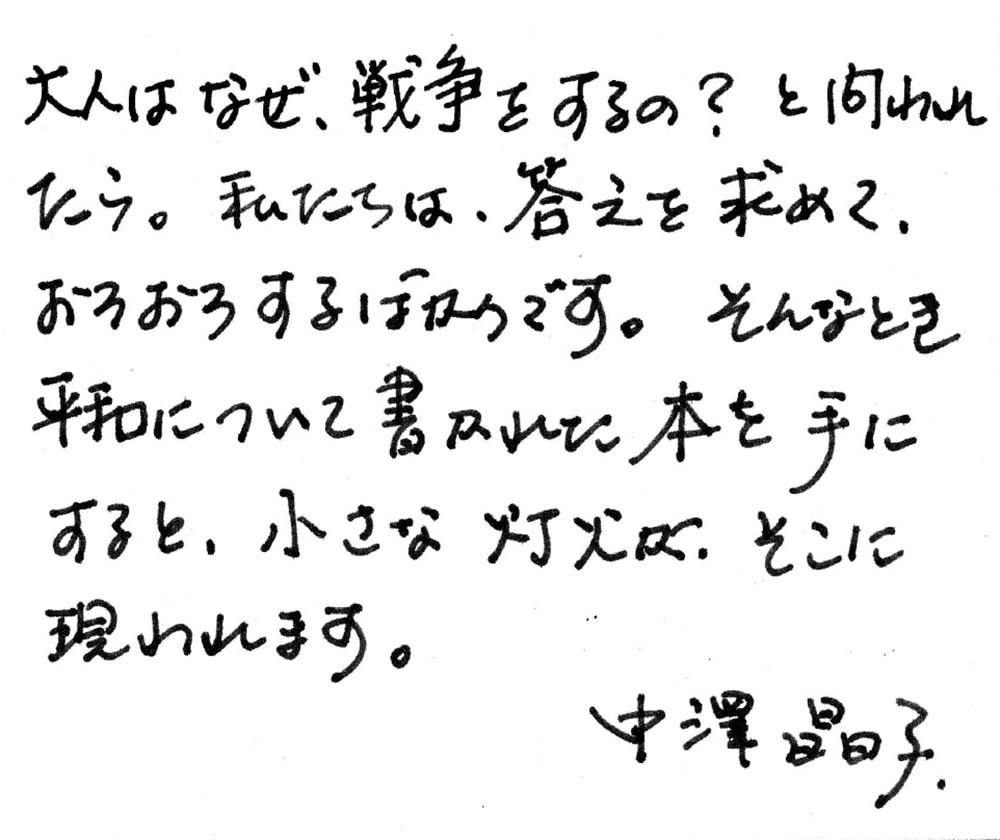 大人はなぜ、戦争をするの？と問われ
たら。私たちは、答えを求めて、
おろおろするばかりです。そんなとき
平和について書かれた本を手に
すると、小さな灯火が、そこに
現われます。
中澤晶子.